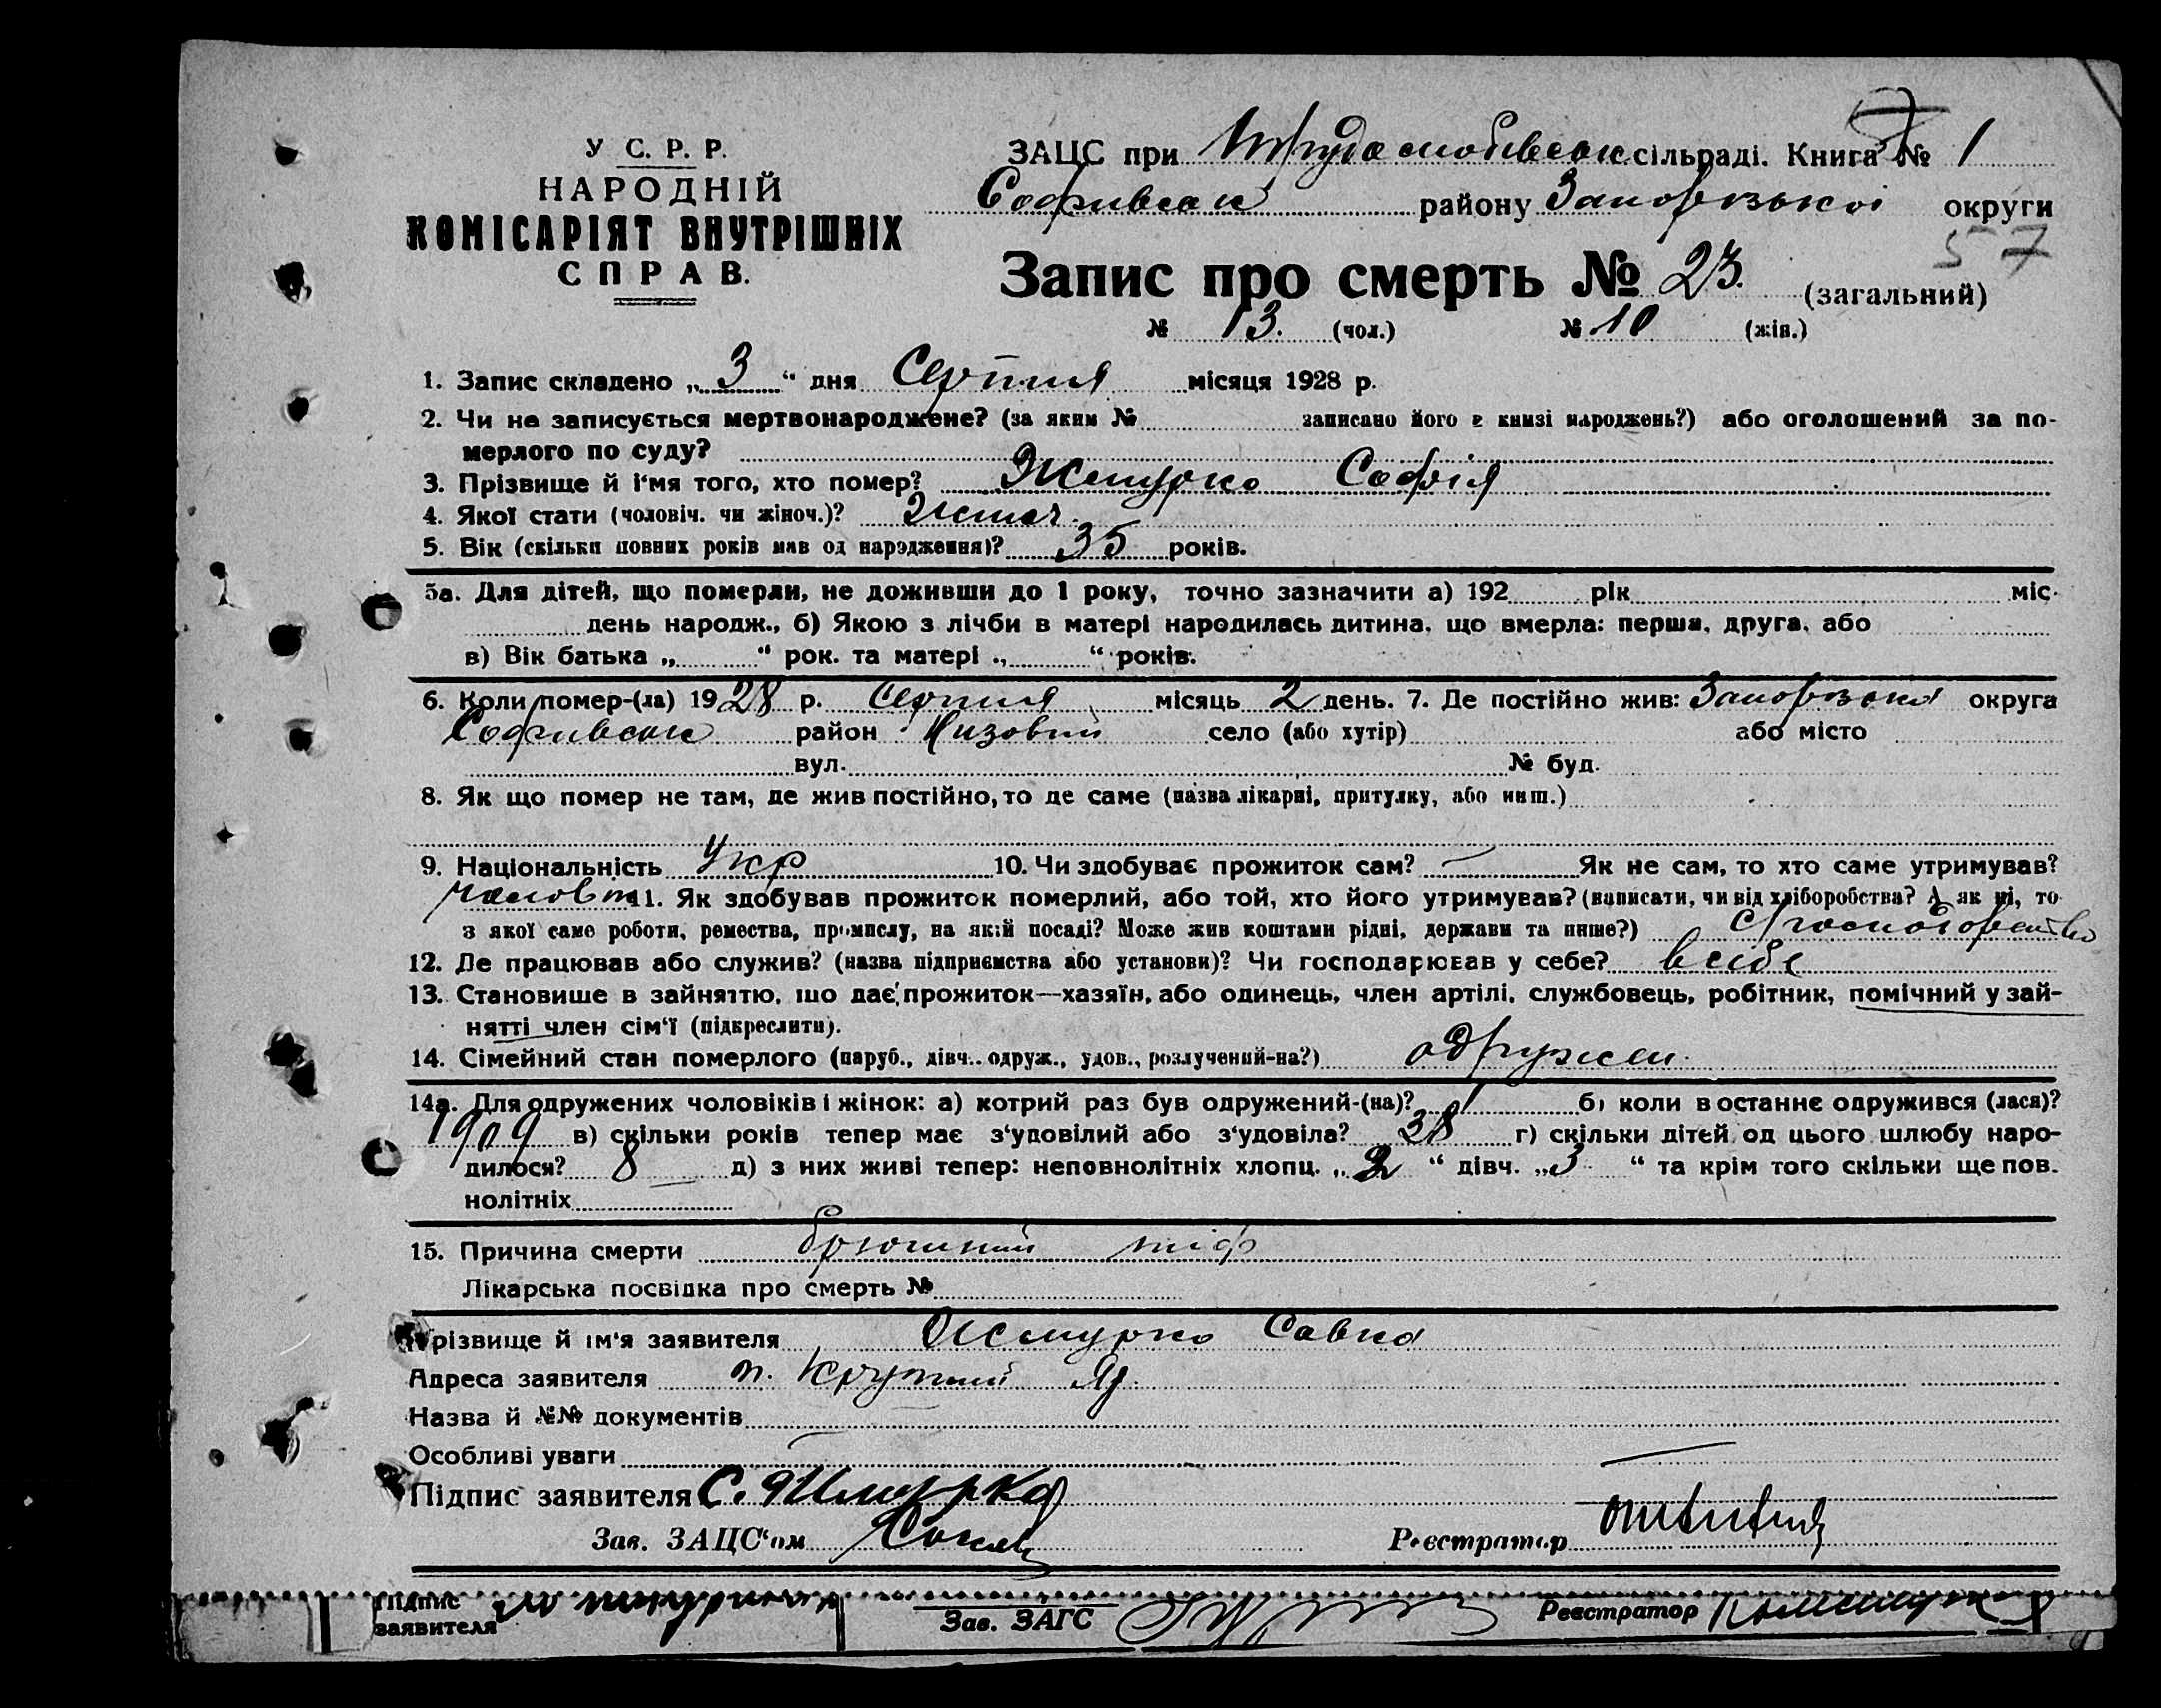 У С. Р. Р.
НАРОДНІЙ
КОМІСАРІЯТ ВНУТРІШНІХ
СПРАВ.
ЗАЦС при сільраді. Книга № 1
Софиевськ району Запорізької округи
57
Запис про смерть № 23. (загальний)
№ 13. (чол.) № 10 (жін.)
1. Запис складено „ 3 “ дня Серпня місяця 1928 р.
2. Чи не записується мертвонароджене? (за яким № записано його в книзі народжень?) або оголошений за по-
мерлого по суду?
3. Прізвище й і'мя того, хто помер? Жмурко Софія
4. Якої стати (чоловіч. чи жіноч.)? Жіноч.
5. Вік (скільки повних років мав од народження)? 35 років.
5а. Для дітей, що померли, не доживши до 1 року, точно зазначити а) 192 рік міс.
день народж., б) Якою з лічби в матері народилась дитина, що вмерла: перша, друга, або
в) Вік батька „ “ рок. та матері „ “ років.
6. Коли помер-(ла) 1928 р. Серпня місяць 2 день. 7. Де постійно жив: Запорізька округа
Софиевськ район Низовий село (або хутір) або місто
вул. № буд.
8. Як що помер не там, де жив постійно, то де саме (назва лікарні, притулку, або инш.)
9. Національність Укр 10. Чи здобуває прожиток сам? — Як не сам, то хто саме утримував?
11. Як здобував прожиток померлий, або той, хто його утримував? (написати, чи від хліборобства? А як ні, то
з якої саме роботи, ремества, промислу, на якій посаді? Може жив коштами рідні, держави та инше?)
12. Де працював або служив? (назва підприємства або установи)? Чи господарював у себе? в себе
13. Становище в зайнятю, що дає прожиток—хазяїн, або одинець, член артілі, службовець, робітник, помічний у зай-
нятті член сім'ї (підкреслити).
14. Сімейний стан померлого (паруб., дівч., одруж., удов., розлучений-на?) одружен.
14а. Для одружених чоловіків і жінок: а) котрий раз був одружений-(на)? 1 б) коли востаннє одружився (лася)?
1909 в) скільки років тепер має з'удовілий або з'удовіла? 38 г) скільки дітей од цього шлюбу наро-
дилося? 8 д) з них живі тепер: неповнолітніх хлопц. „ 2 “ дівч. „ 3 “ та крім того скільки ще пов.
нолітніх
15. Причина смерти брюшний тіф
Лікарська посвідка про смерть №
Прізвище й ім'я заявителя Жмурко Савка
Адреса заявителя п. Крутий Яр.
Назва й №№ документів
Особливі уваги —
Підпис заявителя С. Жмурко
Зав. ЗАЦС'ом Реєстратор
Підпис
заявителя Зав. ЗАГС Реєстратор